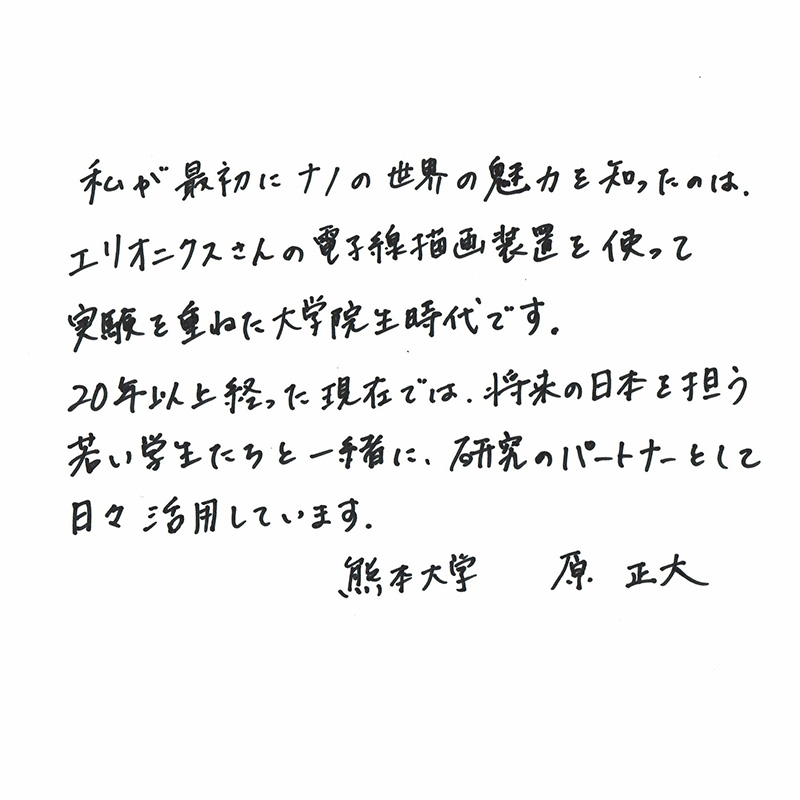 私が最初にナノの世界の魅力を知ったのは、
エリオニクスさんの電子線描画装置を使って
実験を重ねた大学院生時代です。
20年以上経った現在では、将来の日本を担う
若い学生たちと一緒に、研究のパートナーとして
日々活用しています。
熊本大学 原 正大